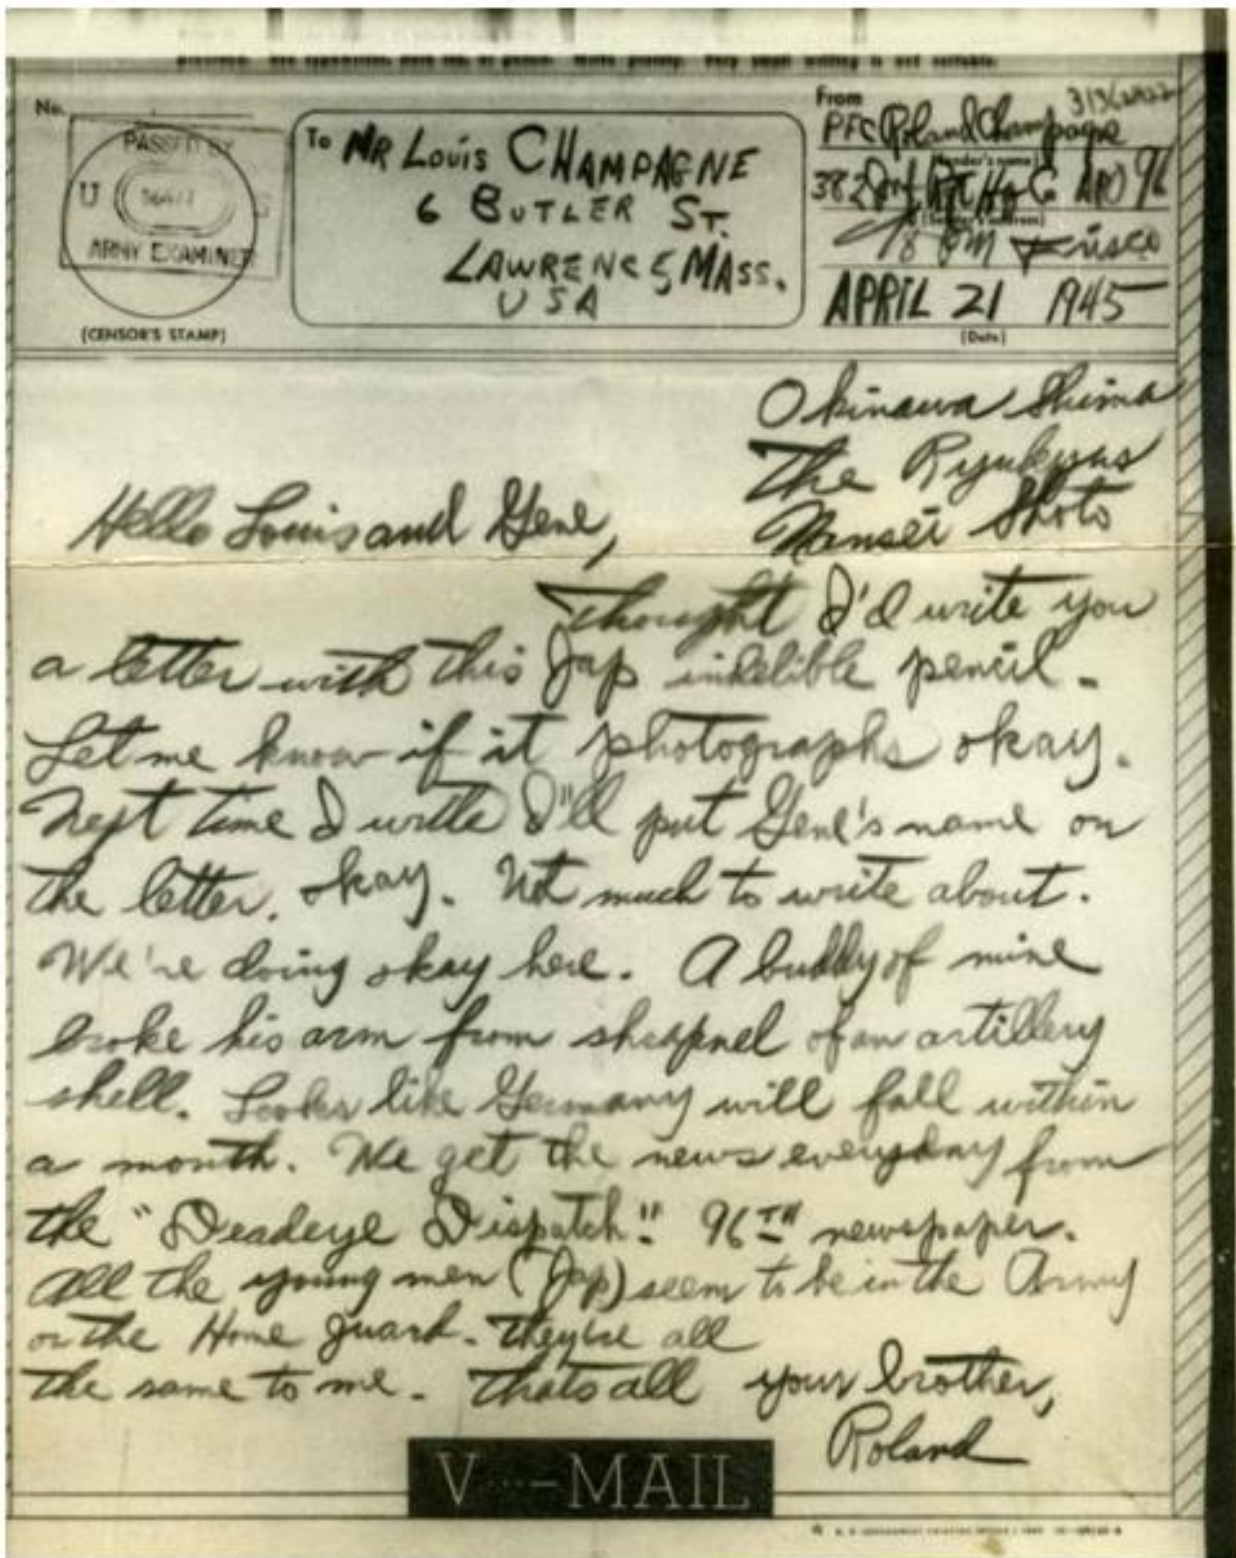 No.
PASSED BY
U S
ARMY EXAMINER
(CENSOR'S STAMP)
To MR Louis CHAMPAGNE
6 BUTLER ST.
LAWRENCE, MASS.
USA
From
PFC Roland Champagne
(Sender's name)
382 Inf. Hq Co APO 96
(Sender's address)
% PM Frisco
APRIL 21 1945
(Date)
Okinawa Shima
The Ryukyus
Nansei Shoto
Hello Louis and Gene,
Thought I'd write you
a letter with this Jap indelible pencil.
Let me know if it photographs okay.
Next time I write I'll put Gene's name on
the letter, okay. Not much to write about.
We're doing okay here. A buddy of mine
broke his arm from shrapnel of an artillery
shell. Looks like Germany will fall within
a month. We get the news everyday from
the "Deadeye Dispatch". 96TH newspaper.
All the young men (Jap) seem to be in the Army
or the Home Guard. They're all
the same to me. Thats all your brother,
Roland
V···-MAIL